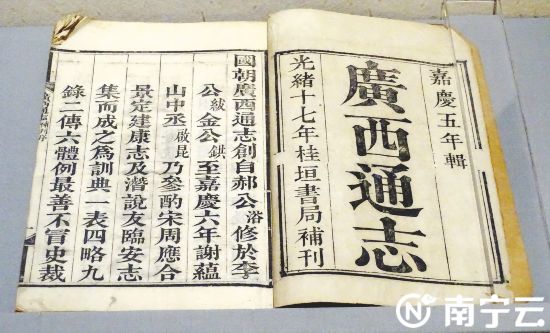 嘉慶五年輯
廣西通志
光緒十七年桂垣書局補刊
國朝廣西通志創自郝公浴修於李
公紱金公鉷至嘉慶六年謝蘊
山中丞啟昆乃參酌宋周應合
景定建康志及潛說友臨安志
集而成之為訓典一表四略九
錄二傳六體例最善不冐史裁
南宁云